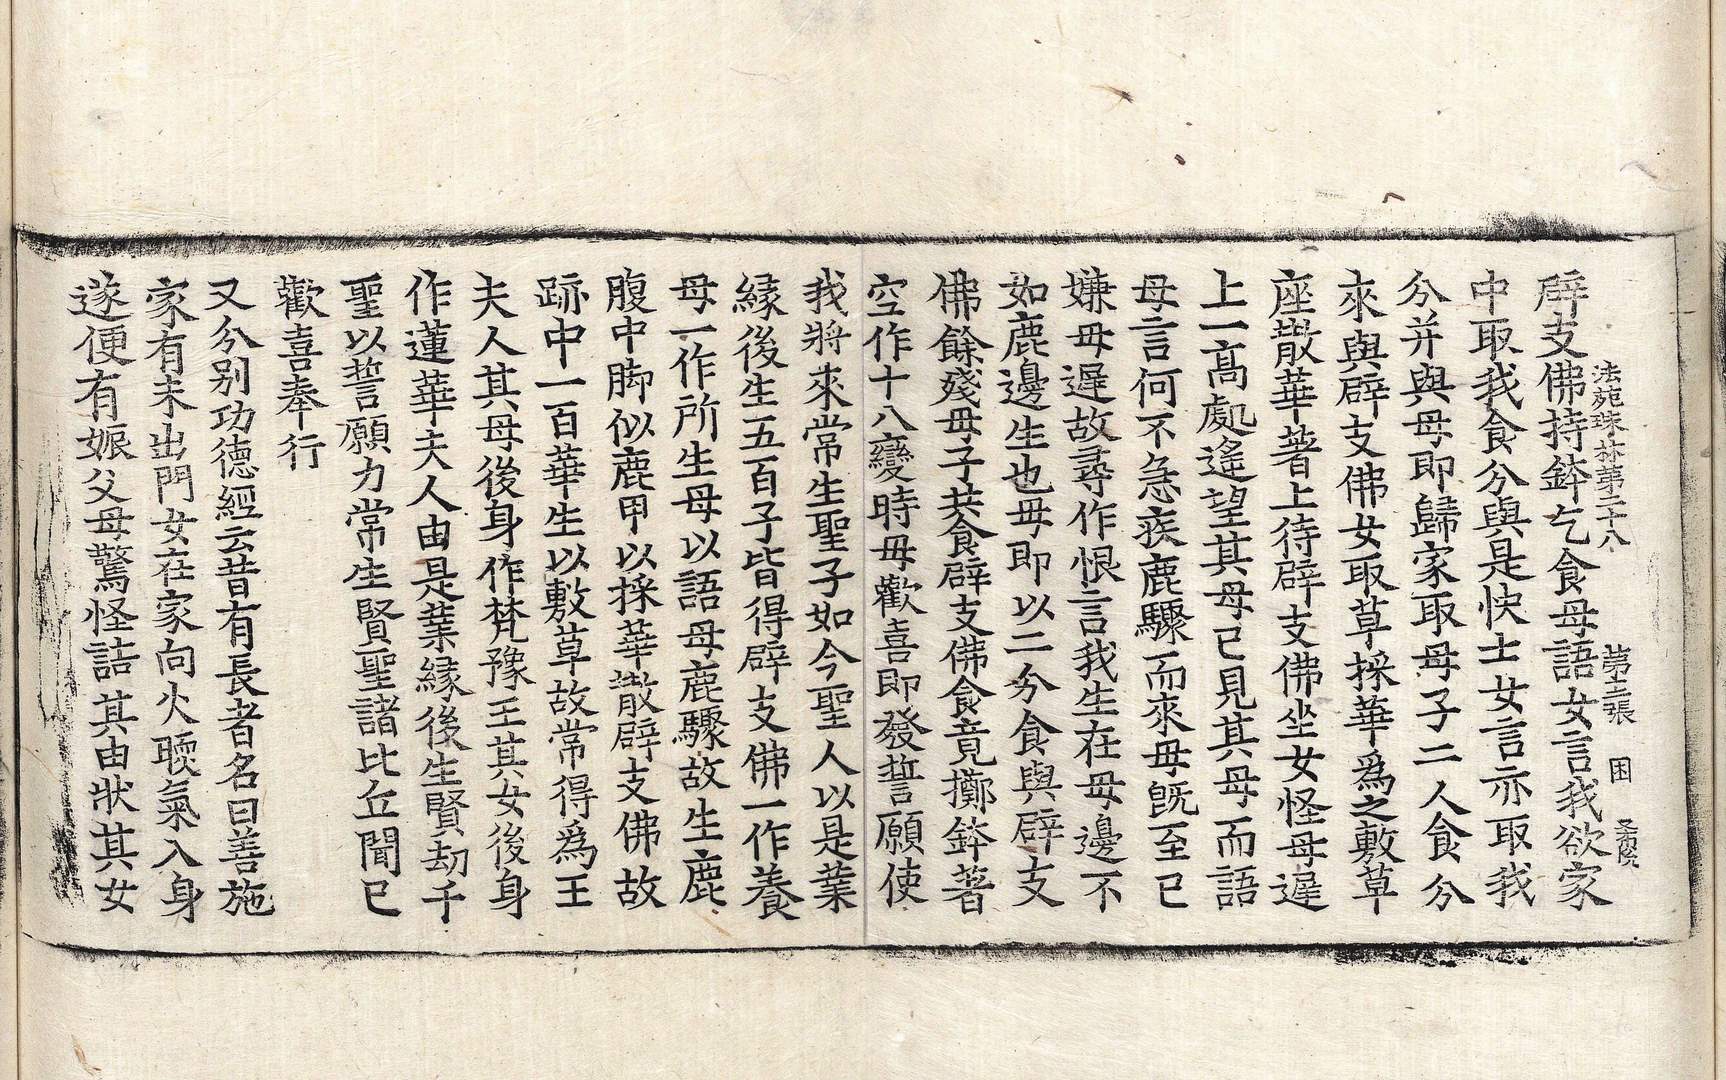 法苑珠林第二十八　第十三張　困
辟支佛持鉢乞食母語女言我欲家
中取我食分與是快士女言亦取我
分并與母即歸家取母子二人食分
來與辟支佛女取草採華爲之敷草
座散華著上待辟支佛坐女怪母遲
上一高處遙望其母已見其母而語
母言何不急疾鹿驟而來母旣至已
嫌母遲故尋作恨言我生在母邊不
如鹿邊生也母即以二分食與辟支
佛餘殘母子共食辟支佛食竟擲鉢著
空作十八變時母歡喜即發誓願使
我將來常生聖子如今聖人以是業
緣後生五百子皆得辟支佛一作養
母一作所生母以語母鹿驟故生鹿
腹中脚似鹿甲以採華散辟支佛故
跡中一百華生以敷草故常得爲王
夫人其母後身作梵豫王其女後身
作蓮華夫人由是業緣後生賢劫千
聖以誓願力常生賢聖諸比丘聞已
歡喜奉行
又分別功德經云昔有長者名曰善施
家有未出門女在家向火暖氣入身
遂便有娠父母驚怪詰其由狀其女